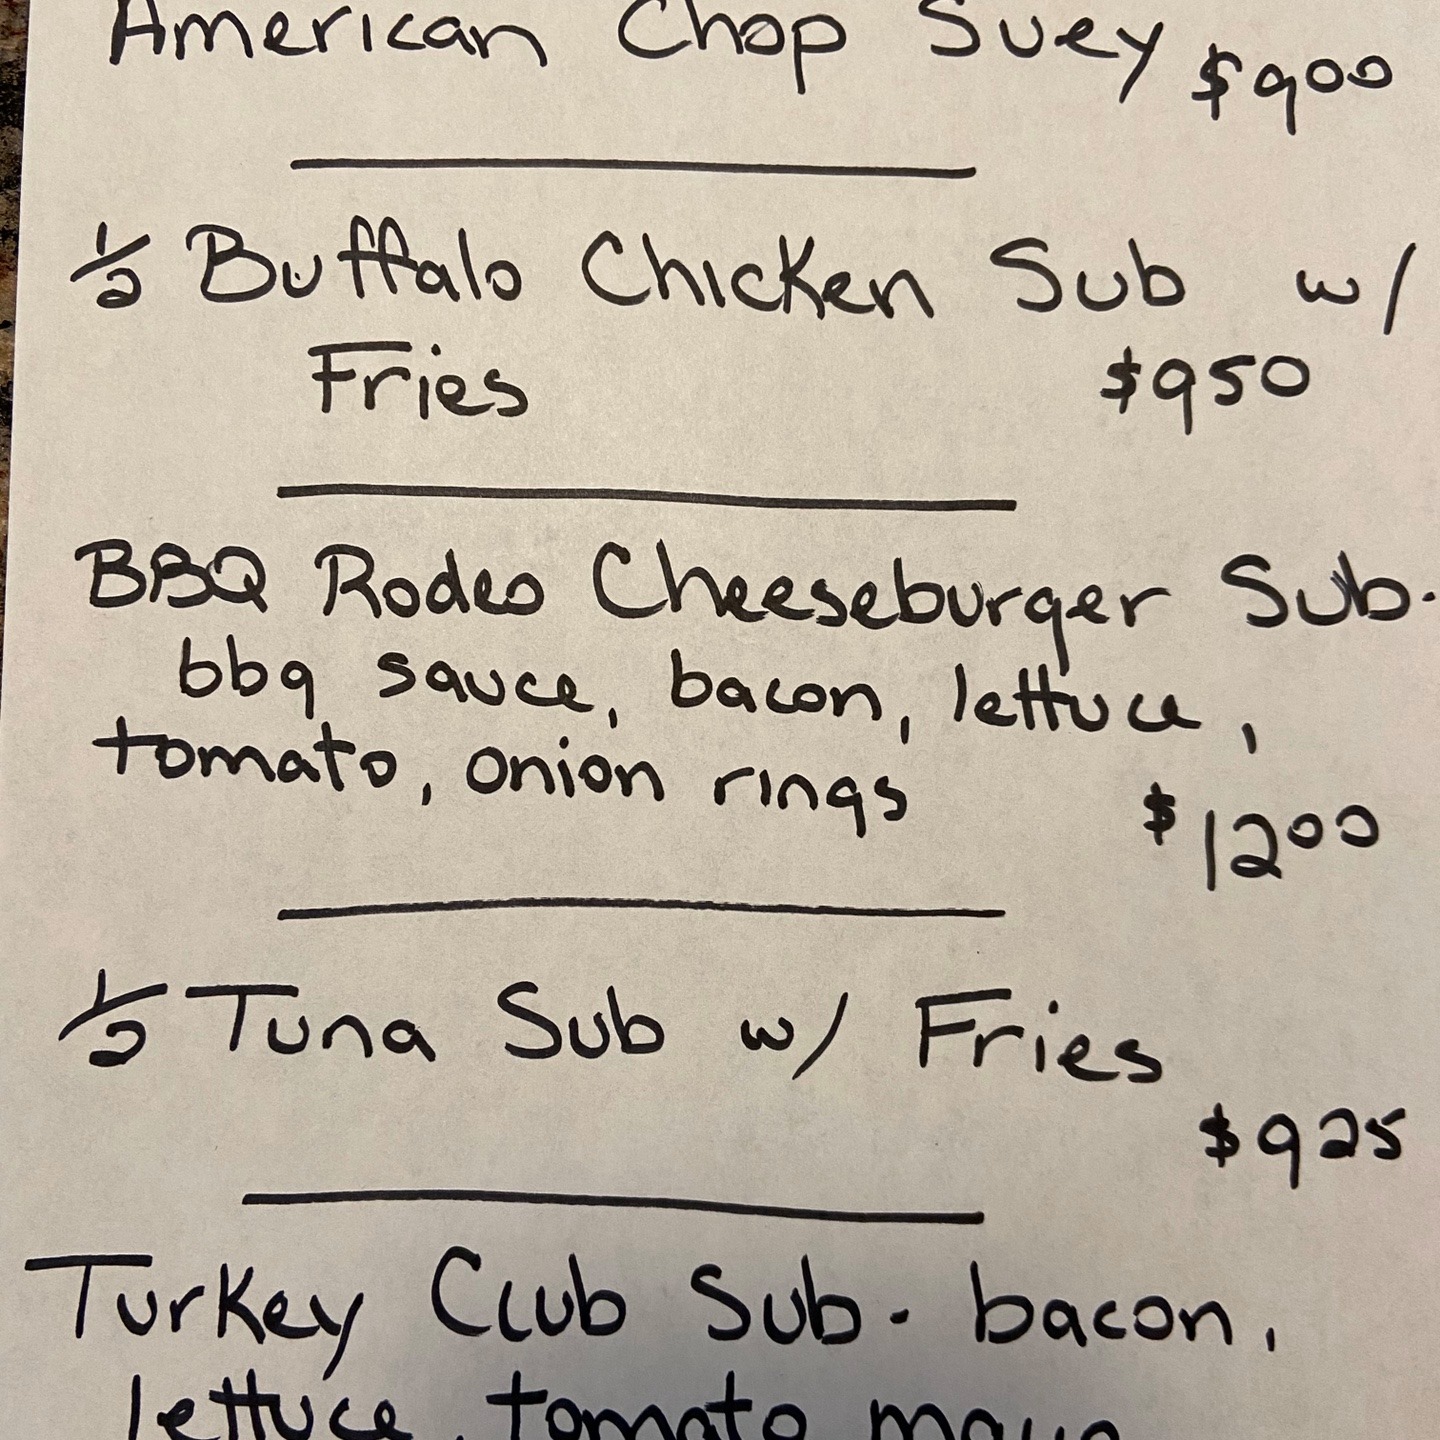 American Chop Suey $900
1/2 Buffalo Chicken Sub w/
Fries $950
BBQ Rodeo Cheeseburger Sub.
bbq sauce, bacon, lettuce,
tomato, onion rings
$1200
1/2 Tuna Sub w/ Fries
$925
Turkey Club Sub. bacon,
lettuce, tomato mayo